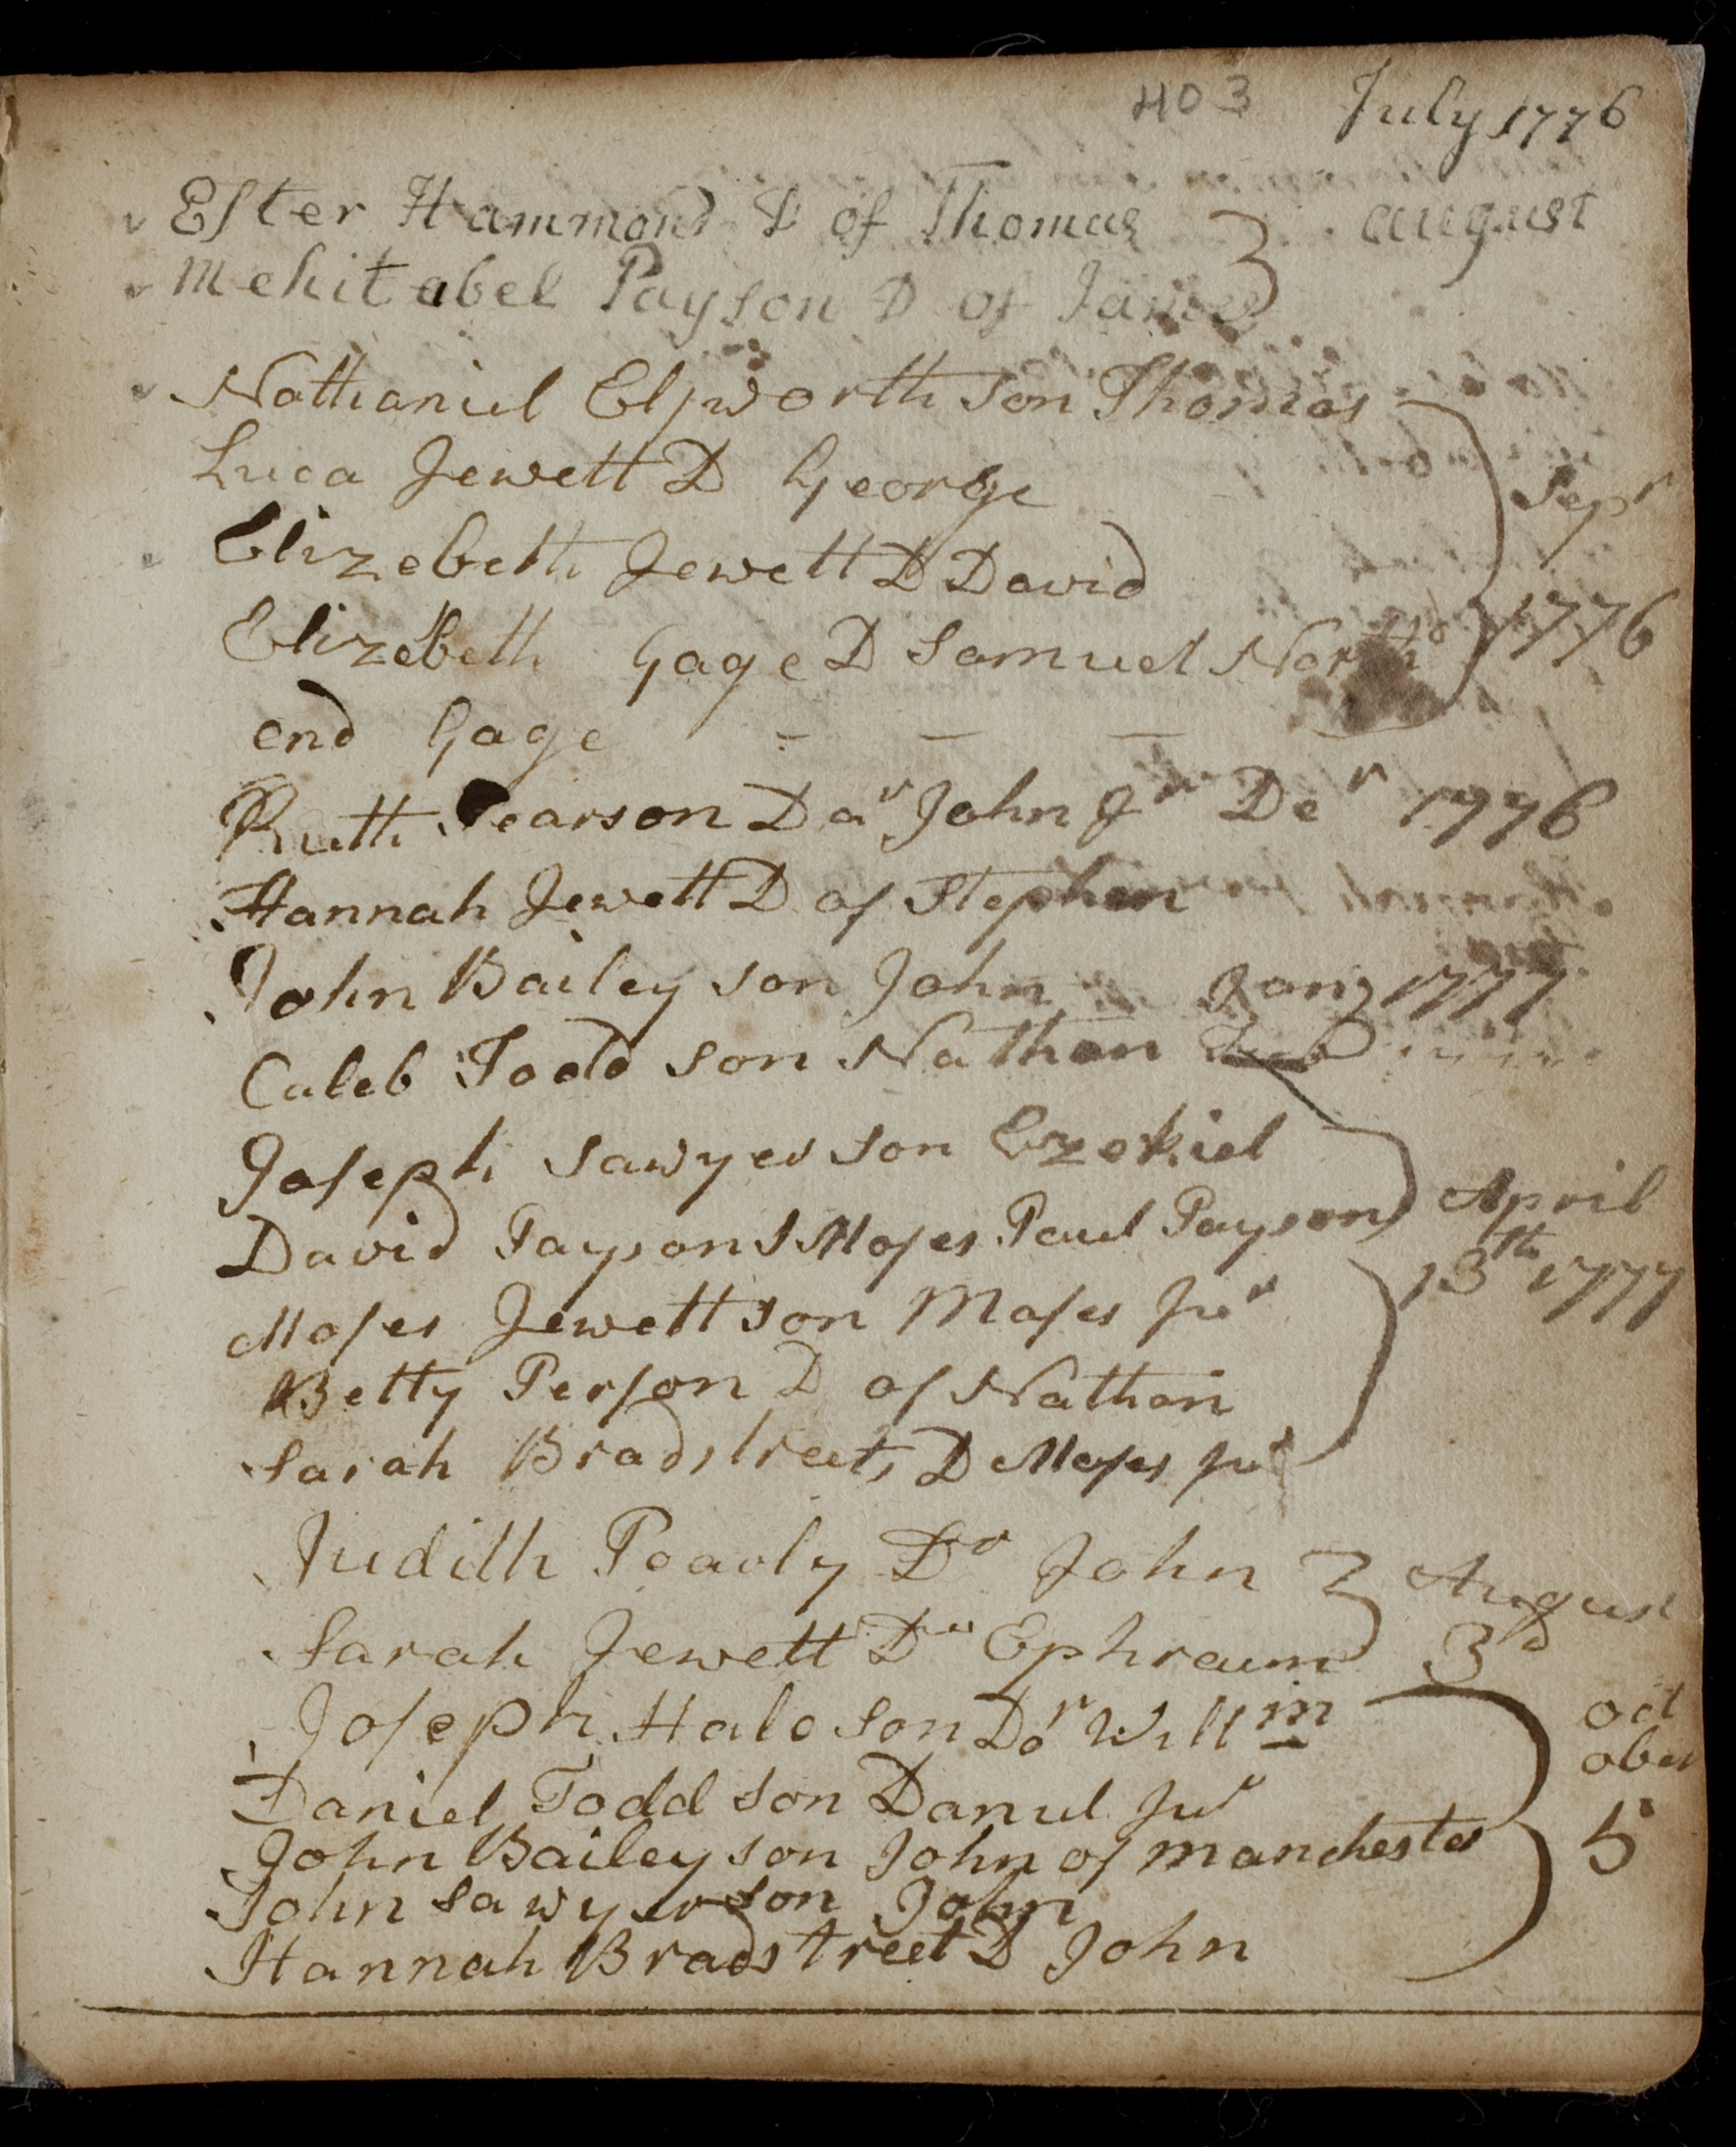 403 July 1776
Ester Hammond D of Thomas august
Mehitabel Payson D of James
Nathaniel Elsworth son Thomas
Luca Jewett D George Sepr
Elizebeth Jewett D David
Elizebeth Gage D Samuel North 1776
end Gage - - -
Ruth Pearson Dar John Jr Der 1776
Hannah Jewett D of Stephen
John Bailey son John Jany 1777
Caleb Todd son Nathan
Joseph Sawyer son Ezekiel
David Payson S Moses Paul Payson April
Moses Jewett son Moses Jur 13th 1777
Betty Person D of Nathan
Sarah Bradstreet, D Moses Jur
Judith Pearly Dr John August
Sarah Jewett Dr Ephraim 3d
Joseph Hale son Dor Willm oct
Daniel Todd son Daniel Jur ober
John Bailey son John of manchester 5
John Sawyer son John
Hannah Bradstreet D John